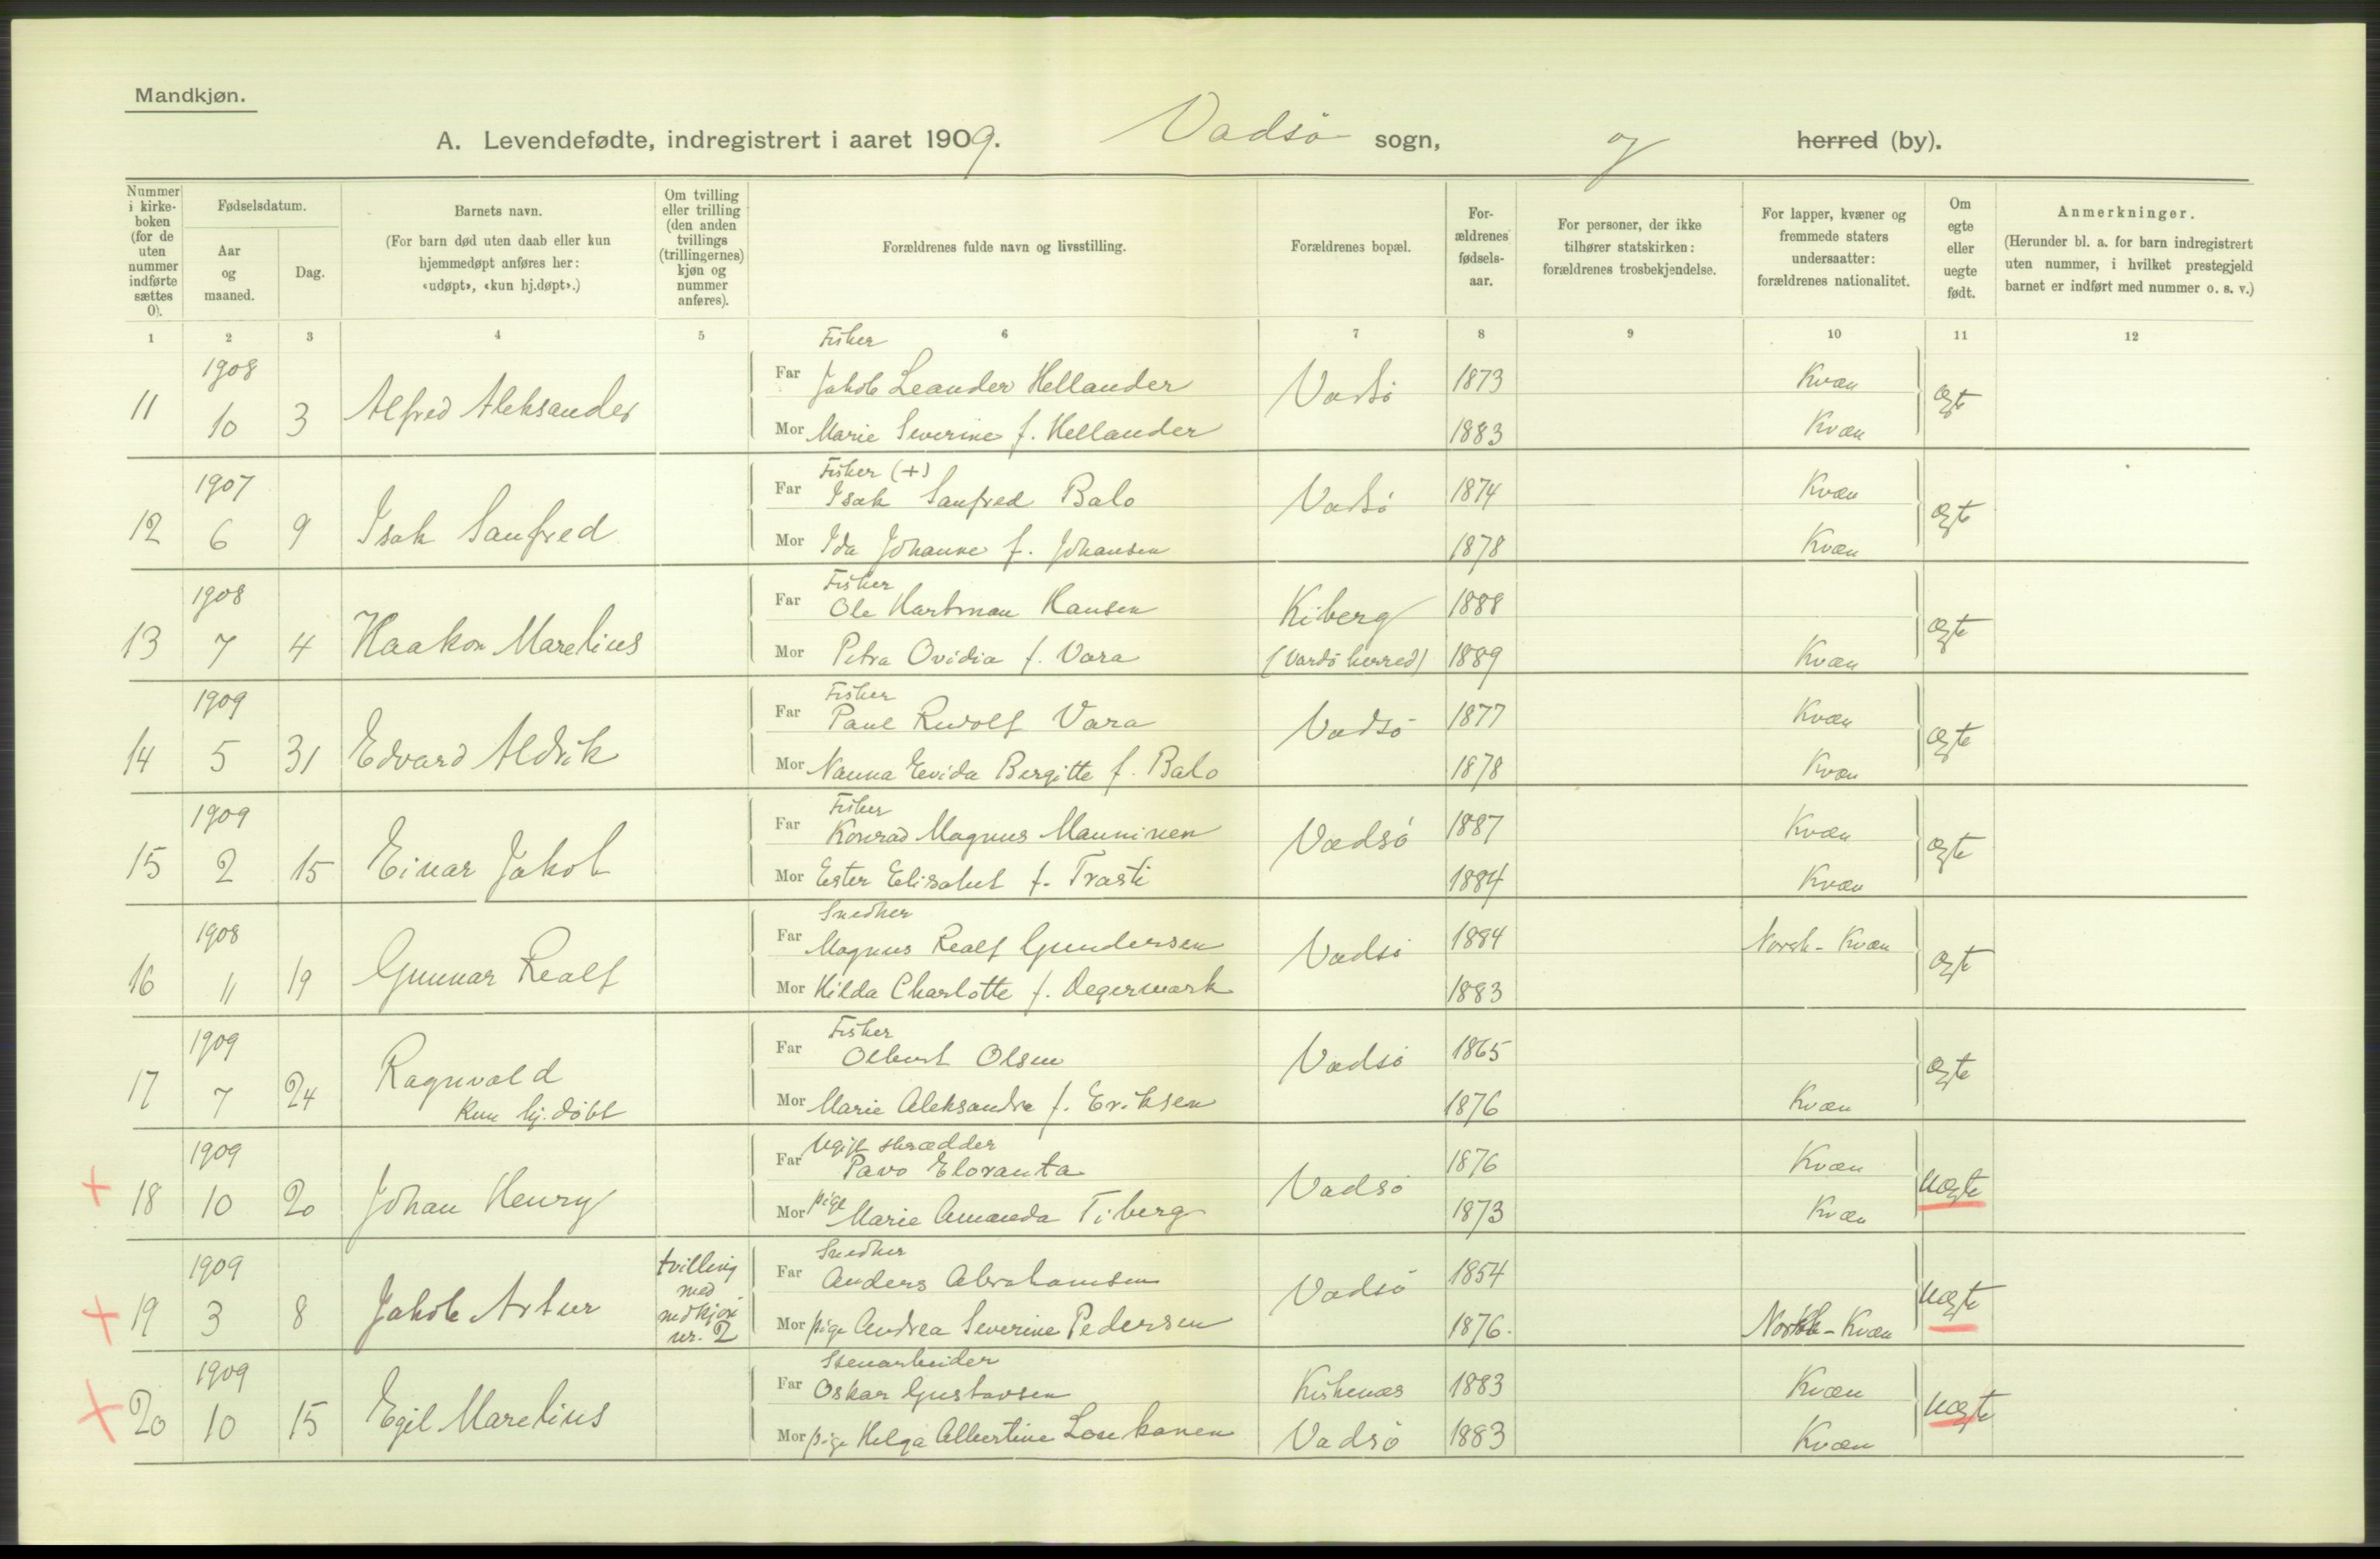 Mandkjøn.
A. Levendefødte, indregistrert i aaret 1909. Vadsö sogn, og herred (by).
Nummer i kirkeboken (for de uten nummer indførte sættes 0).
Fødselsdatum.
Aar og maaned.
Dag.
Barnets navn.
(For barn død uten daab eller kun hjemmedøpt anføres her: «udøpt», «kun hj.døpt».)
Om tvilling eller trilling (den anden tvillings (trillingernes) kjøn og nummer anføres).
Forældrenes fulde navn og livsstilling.
Forældrenes bopæl.
Forældrenes fødselsaar.
For personer, der ikke tilhører statskirken: forældrenes trosbekjendelse.
For lapper, kvæner og fremmede staters undersaatter: forældrenes nationalitet.
Om egte eller uegte født.
Anmerkninger.
(Herunder bl. a. for barn indregistrert uten nummer, i hvilket prestegjeld barnet er indført med nummer o. s. v.)
1 2 3 4 5 6 7 8 9 10 11 12
Fisker
11 1908 10 3 Alfred Aleksander Far Jakob Leander Hellander Vadsö 1873 Kvæn ægte
Mor Marie Severine f. Hellander 1883 Kvæn
Fisker (+)
12 1907 6 9 Isak Sanfred Far Isak Sanfred Balo Vadsö 1874 Kvæn ægte
Mor Ida Johanne f. Johansen 1878 Kvæn
Fisker
13 1908 7 4 Haakon Marelius Far Ole Hartman Hansen Kiberg 1888 ægte
Mor Petra Ovidia f. Vara (Vardö herred) 1889 Kvæn
Fisker
14 1909 5 31 Edvard Aldrik Far Paul Rudolf Vara Vadsö 1877 Kvæn ægte
Mor Nanna Evida Bergitte f. Balo 1878 Kvæn
Fisker
15 1909 2 15 Einar Jakob Far Konrad Magnus Manninen Vadsö 1887 Kvæn ægte
Mor Ester Elisabet f. Trasti 1884 Kvæn
Snedker
16 1908 11 19 Gunnar Realf Far Magnus Realf Gundersen Vadsö 1884 Norsk-Kvæn ægte
Mor Hilda Charlotte f. Degermark 1883
Fisker
17 1909 7 24 Ragnvald Far Olsen Vadsö 1865 ægte
kun hj. döbt Mor Marie Aleksandra f. Eriksen 1876 Kvæn
Ugift skrædder
18 1909 10 20 Johan Henry Far Pavo Eloranta Vadsö 1876 Kvæn uægte
Mor pige Marie Amanda Tiberg 1873 Kvæn
Snedker
19 1909 3 8 Jakob Artur tvilling med nr. 2 Far Anders Abrahamsen Vadsö 1854 uægte
Mor pige Andrea Severine Pedersen 1876. Norsk-Kvæn
Stenarbeider
20 1909 10 15 Egil Marelius Far Oskar Gustavsen Kirkenæs 1883 Kvæn uægte
Mor pige Helga Albertine Loukanen Vadsö 1883 Kvæn